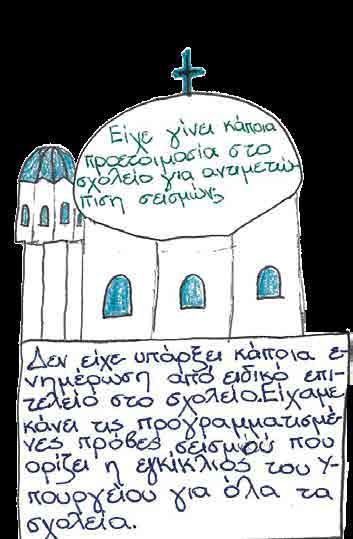 Είχε γίνει κάποια
προετοιμασία στο
σχολείο για αντιμετώ-
πιση σεισμών;
Δεν είχε υπάρξει κάποια ε-
νημέρωση από ειδικό επι-
τελείο στο σχολείο. Είχαμε
κάνει τις προγραμματισμέ-
νες πρόβες σεισμού που
ορίζει η εγκίκλιος του Υ-
πουργείου για όλα τα
σχολεία.